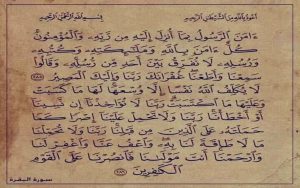 أعوذ بالله من الشيطان الرجيم
بسم الله الرحمن الرحيم
ءَامَنَ ٱلرَّسُولُ بِمَآ أُنزِلَ إِلَيْهِ مِن رَّبِّهِۦ وَٱلْمُؤْمِنُونَ
كُلٌّ ءَامَنَ بِٱللَّهِ وَمَلَٰٓئِكَتِهِۦ وَكُتُبِهِۦ
وَرُسُلِهِۦ لَا نُفَرِّقُ بَيْنَ أَحَدٍ مِّن رُّسُلِهِۦ وَقَالُوا۟
سَمِعْنَا وَأَطَعْنَا غُفْرَانَكَ رَبَّنَا وَإِلَيْكَ ٱلْمَصِيرُ ٢٨٥
لَا يُكَلِّفُ ٱللَّهُ نَفْسًا إِلَّا وُسْعَهَا لَهَا مَا كَسَبَتْ
وَعَلَيْهَا مَا ٱكْتَسَبَتْ رَبَّنَا لَا تُؤَاخِذْنَآ إِن نَّسِينَآ
أَوْ أَخْطَأْنَا رَبَّنَا وَلَا تَحْمِلْ عَلَيْنَآ إِصْرًا كَمَا
حَمَلْتَهُۥ عَلَى ٱلَّذِينَ مِن قَبْلِنَا رَبَّنَا وَلَا تُحَمِّلْنَا
مَا لَا طَاقَةَ لَنَا بِهِۦ وَٱعْفُ عَنَّا وَٱغْفِرْ لَنَا
وَٱرْحَمْنَآ أَنتَ مَوْلَىٰنَا فَٱنصُرْنَا عَلَى ٱلْقَوْمِ
ٱلْكَٰفِرِينَ ٢٨٦
سورة البقرة